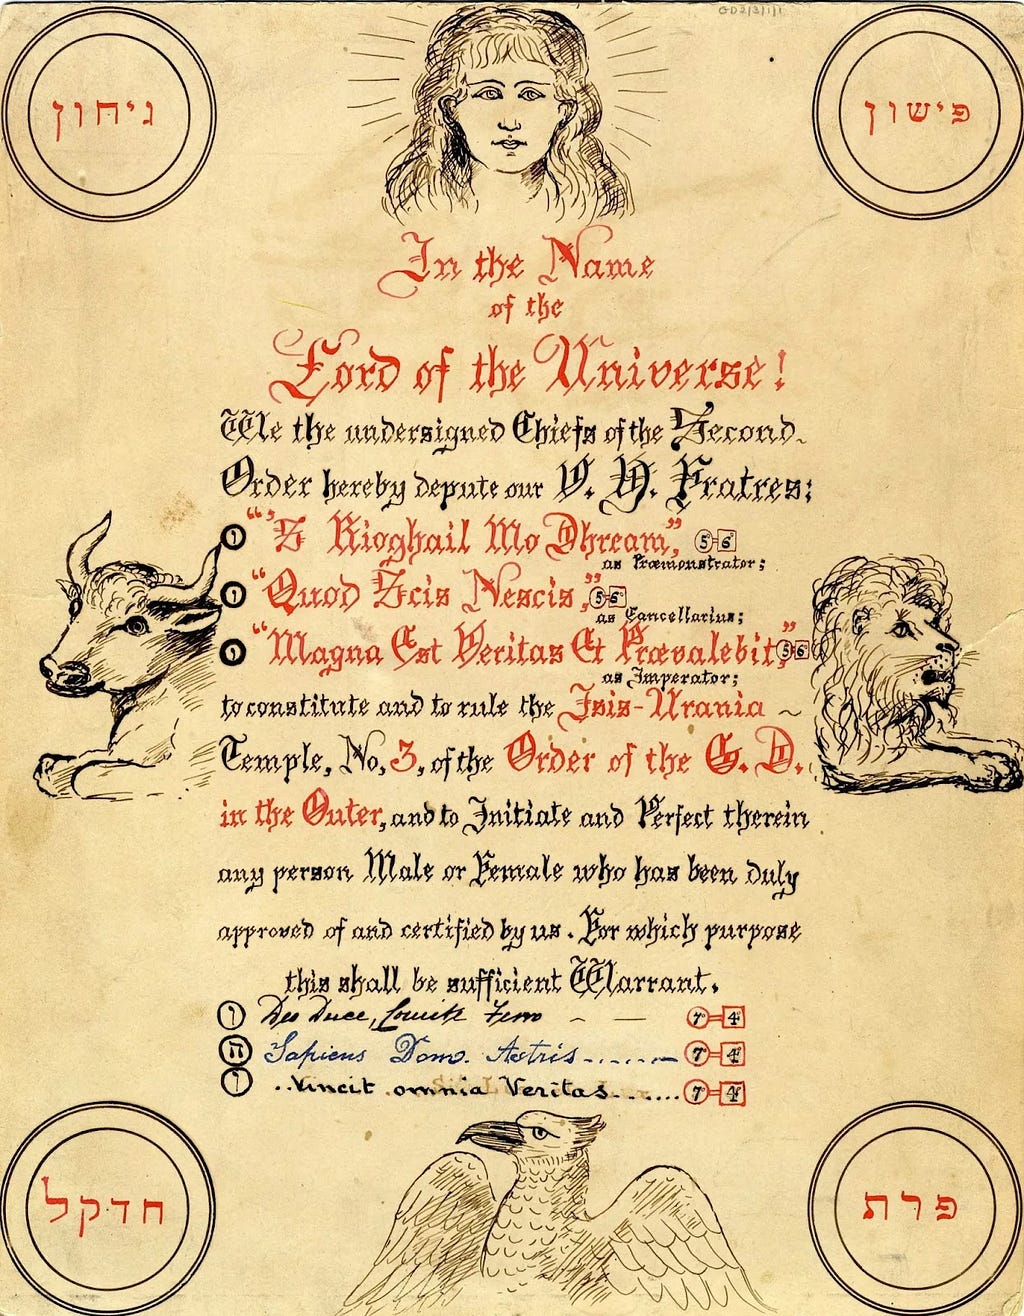 GD2/3/1/1
גיחון
פישון
In the Name
of the
Lord of the Universe!
We the undersigned Chiefs of the Second
Order hereby depute our V. H. Fratres:
ו "'S Rioghail Mo Dhream," 5=6
as Præmonstrator;
ו "Quod Scis Nescis," 5=6
as Cancellarius;
ו "Magna Est Veritas Et Prævalebit," 5=6
as Imperator;
to constitute and to rule the Isis-Urania ~
Temple, No, 3, of the Order of the G. D.
in the Outer, and to Initiate and Perfect therein
any person Male or Female who has been duly
approved of and certified by us. For which purpose
this shall be sufficient Warrant.
ו Deo Duce, Comite Ferro - — 7°=4°
ה Sapiens Dom. Astris....... 7°=4°
ו ..Vincit omnia Veritas....... 7°=4°
חדקל
פרת